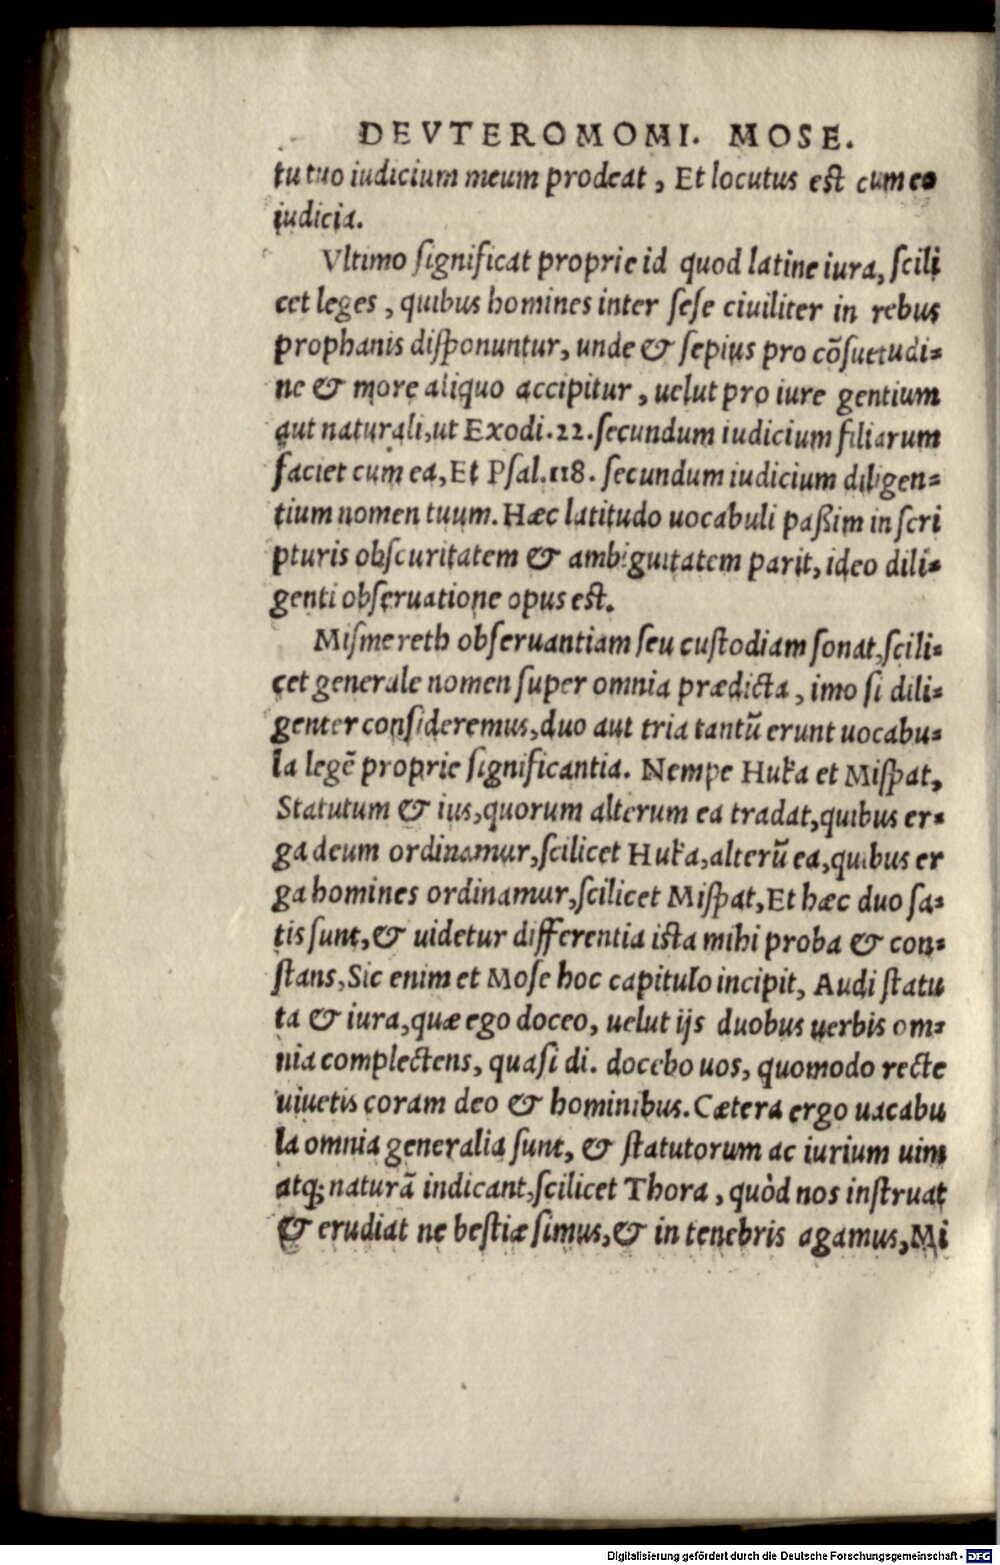 DEVTEROMOMI. MOSE.
tu tuo iudicium meum prodeat, Et locutus est cum eo
iudicia.
Vltimo significat proprie id quod latine iura, scili
cet leges, quibus homines inter sese ciuiliter in rebus
prophanis disponuntur, unde & sepius pro cõsuetudi=
ne & more aliquo accipitur, uelut pro iure gentium
aut naturali, ut Exodi. 22. secundum iudicium filiarum
faciet cum ea, Et Psal. 118. secundum iudicium diligen=
tium nomen tuum. Hæc latitudo uocabuli paßim in scri
pturis obscuritatem & ambiguitatem parit, ideo dili=
genti obseruatione opus est.
Mismereth obseruantiam seu custodiam sonat, scili=
cet generale nomen super omnia prædicta, imo si dili=
genter consideremus, duo aut tria tantũ erunt uocabu=
la legẽ proprie significantia. Nempe Huka et Mispat,
Statutum & ius, quorum alterum ea tradat, quibus er=
ga deum ordinamur, scilicet Huka, alterũ ea, quibus er
ga homines ordinamur, scilicet Mispat, Et hæc duo sa=
tis sunt, & uidetur differentia ista mihi proba & con=
stans, Sic enim et Mose hoc capitulo incipit, Audi statu
ta & iura, quæ ego doceo, uelut ijs duobus uerbis om=
nia complectens, quasi di. docebo uos, quomodo recte
uiuetis coram deo & hominibus. Cætera ergo uacabu
la omnia generalia sunt, & statutorum ac iurium uim
atq; naturã indicant, scilicet Thora, quòd nos instruat
& erudiat ne bestiæ simus, & in tenebris agamus, Mi
Digitalisierung gefördert durch die Deutsche Forschungsgemeinschaft - DFG